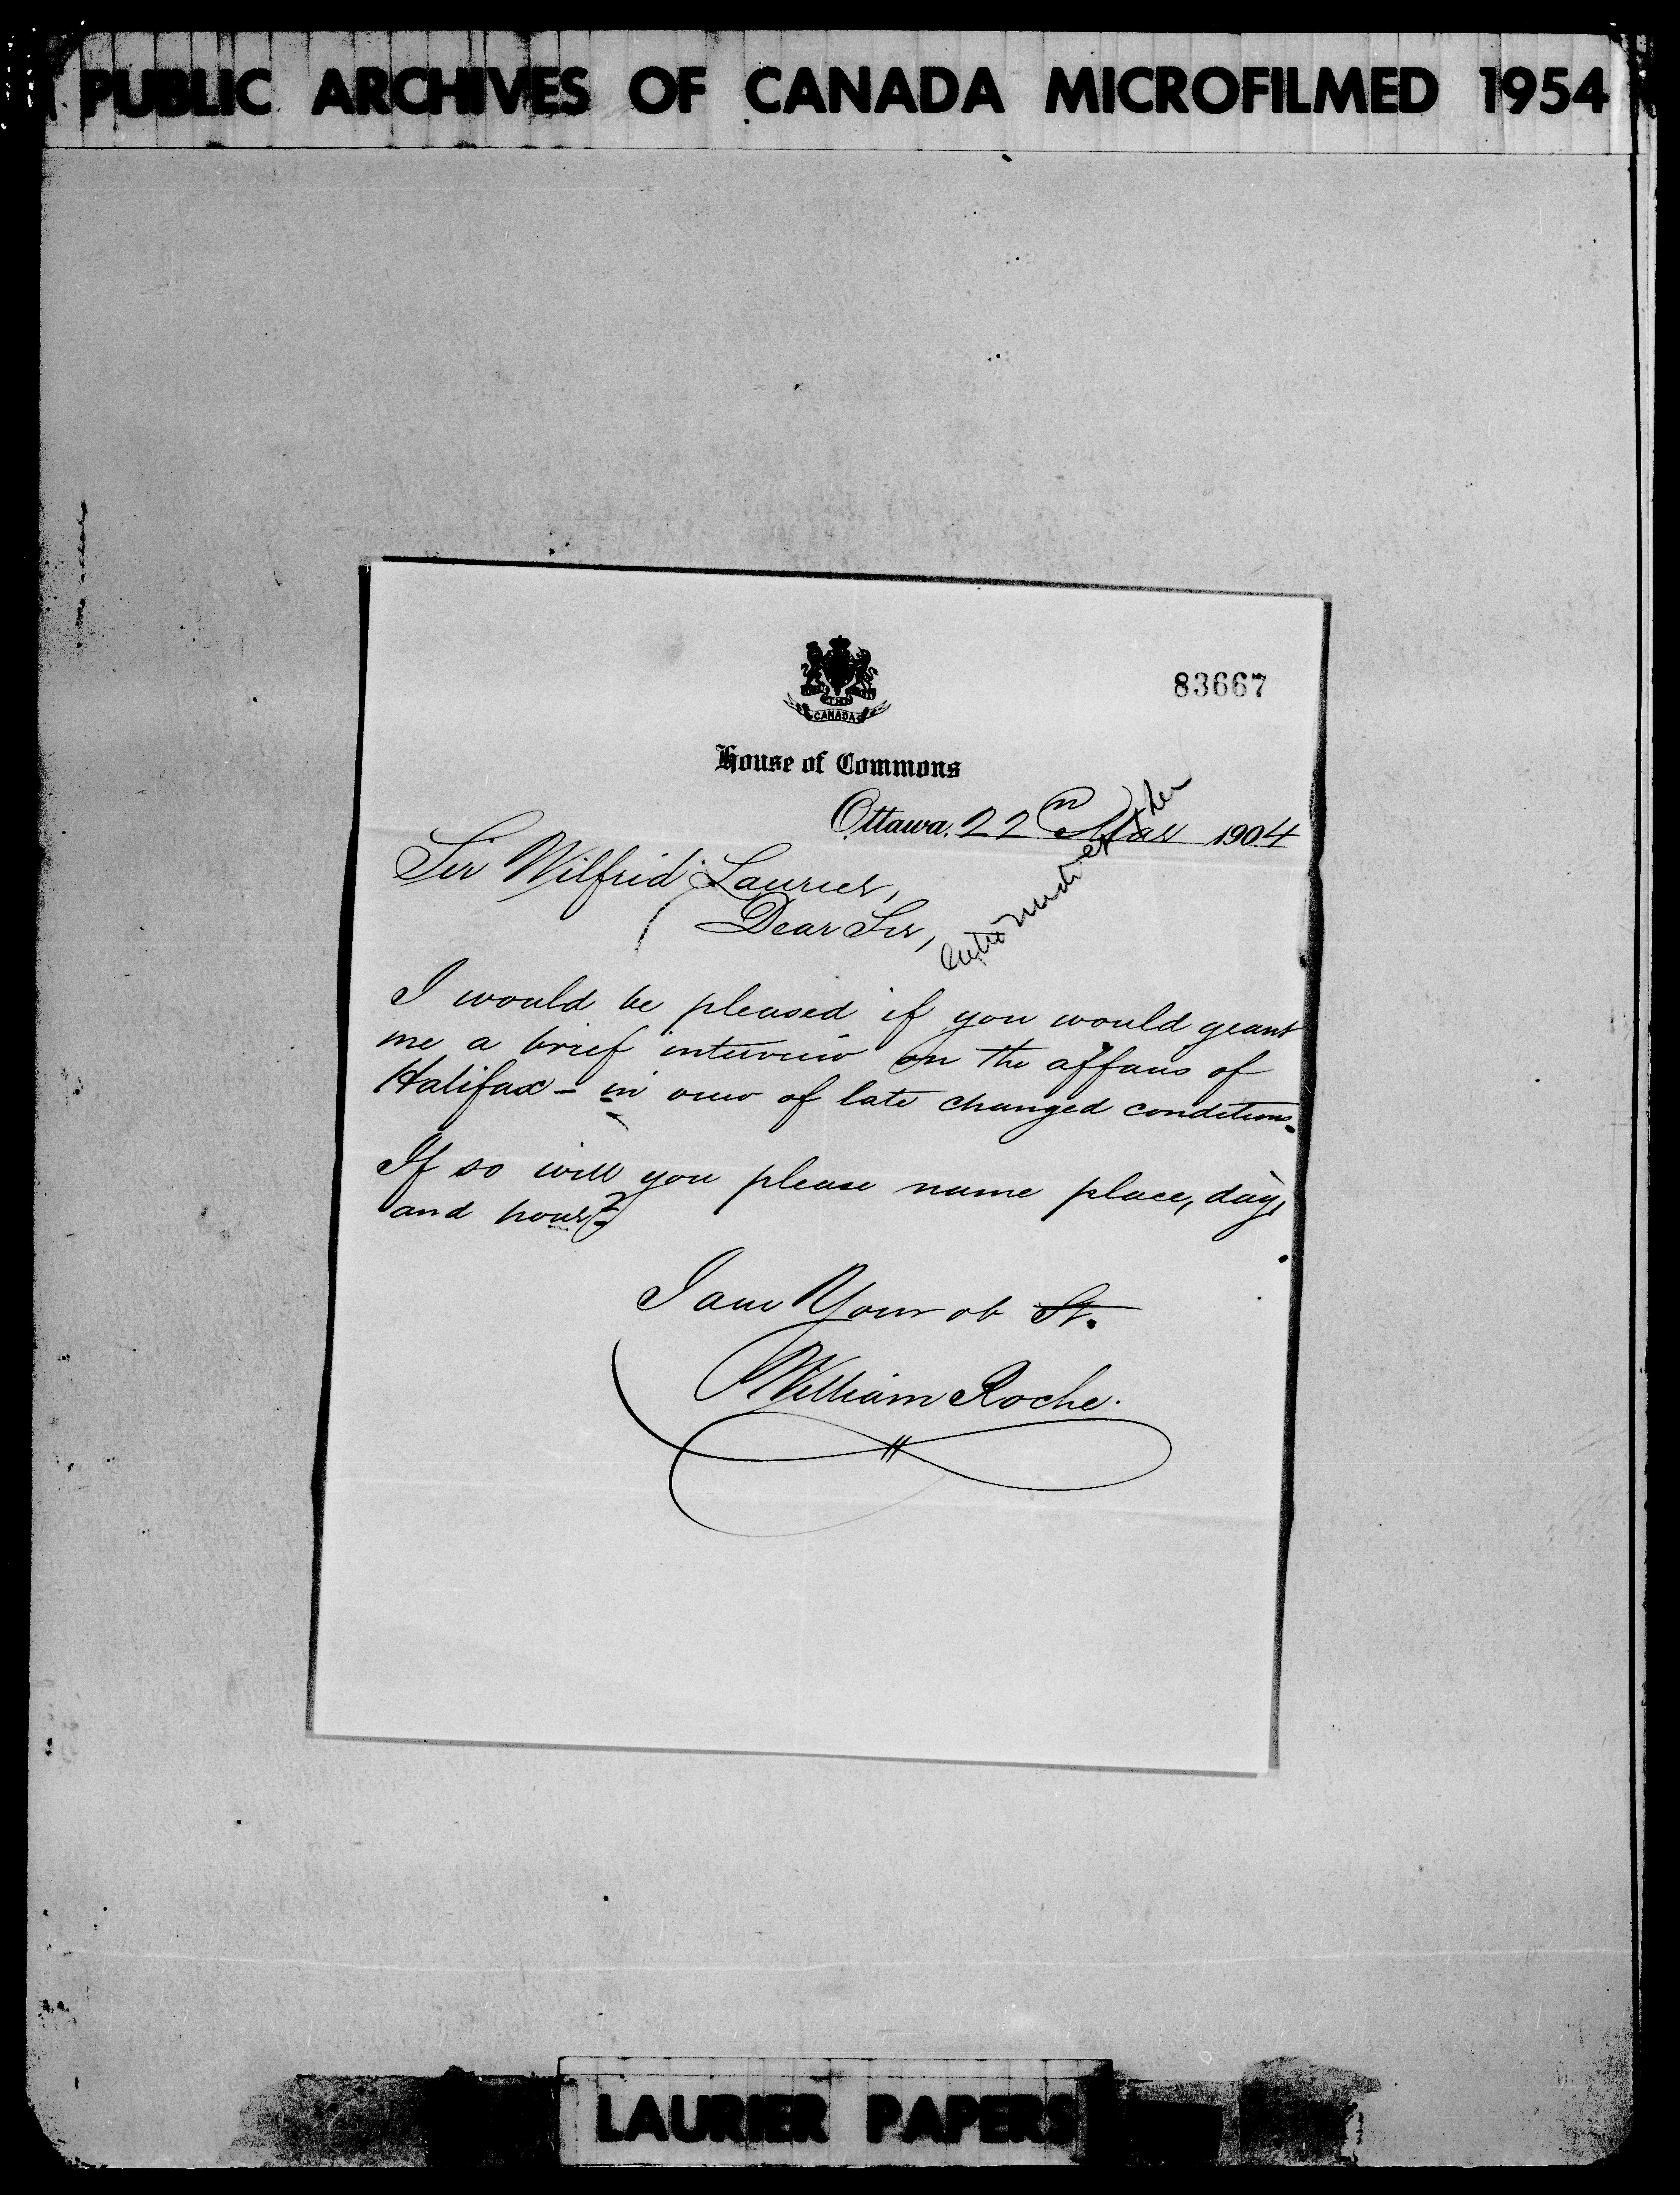 PUBLIC ARCHIVES OF CANADA MICROFILMED 1954
CANADA
83667
House of Commons
Ottawa, 22n Mar 1904
Sir Wilfrid Laurier,
Dear Sir,
I would be pleased if you would grant
me a brief interview on the affairs of
Halifax - in view of late changed conditions.
If so will you please name place, day,
and hour?
I am Your ob St.
William Roche.
LAURIER PAPERS